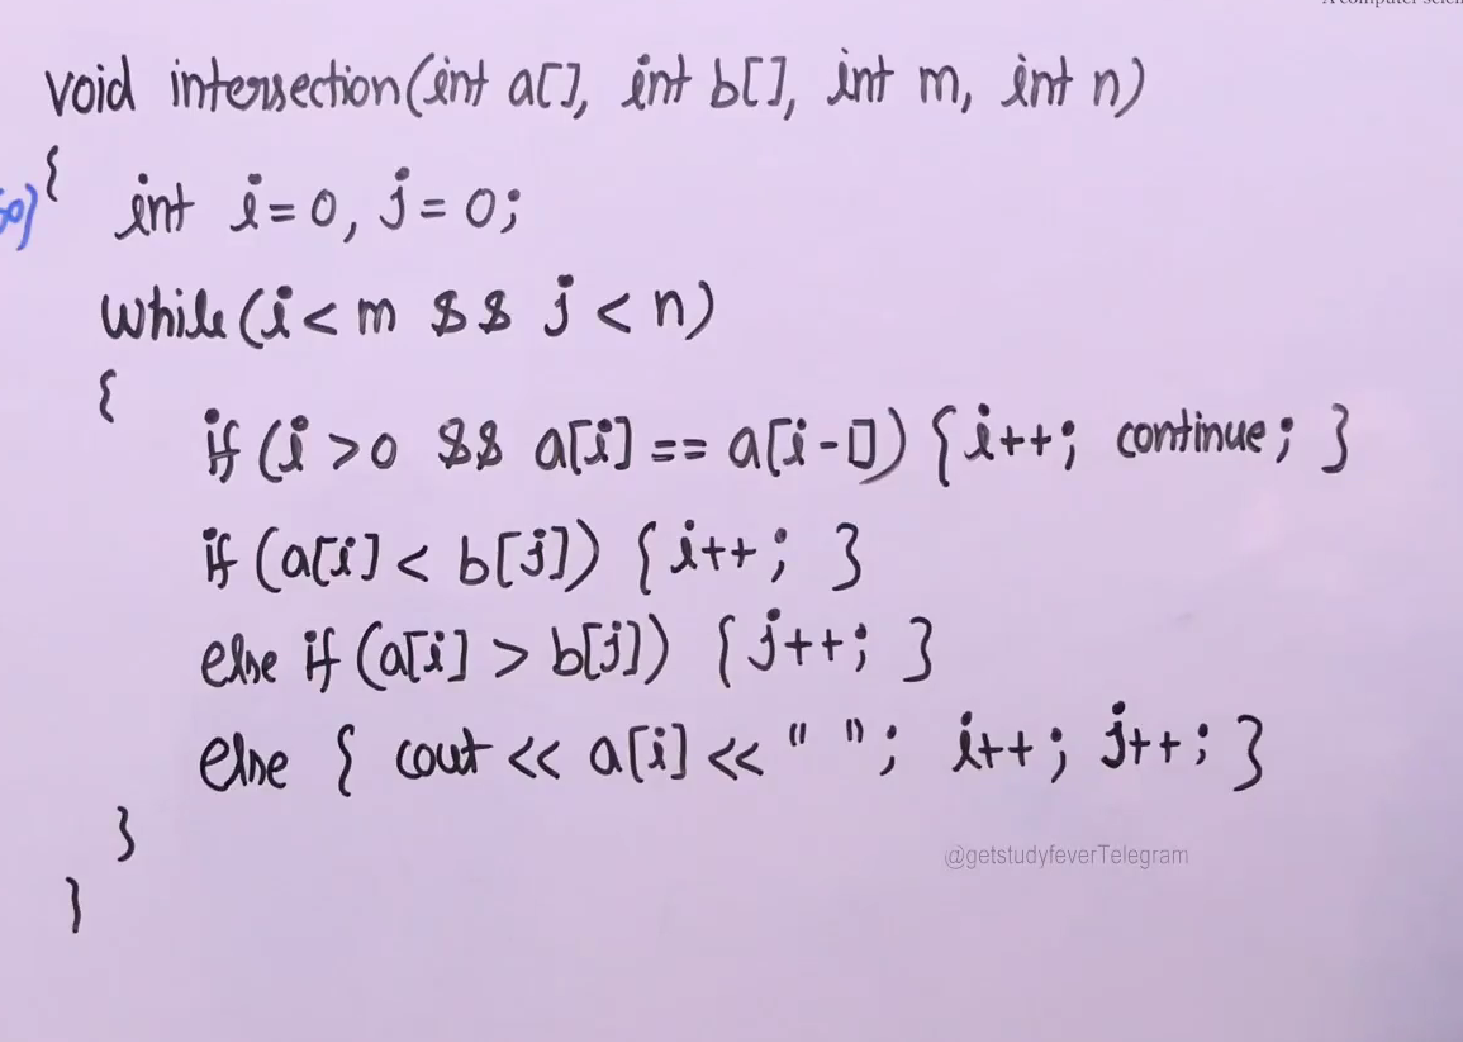 void intersection(int a[], int b[], int m, int n)
{
int i=0, j=0;
while(i<m && j<n)
{
if(i>0 && a[i]==a[i-1]) {i++; continue; }
if (a[i]< b[j]) {i++; }
else if (a[i] > b[j]) {j++; }
else { cout << a[i] << " "; i++; j++; }
}
}
@getstudyfeverTelegram